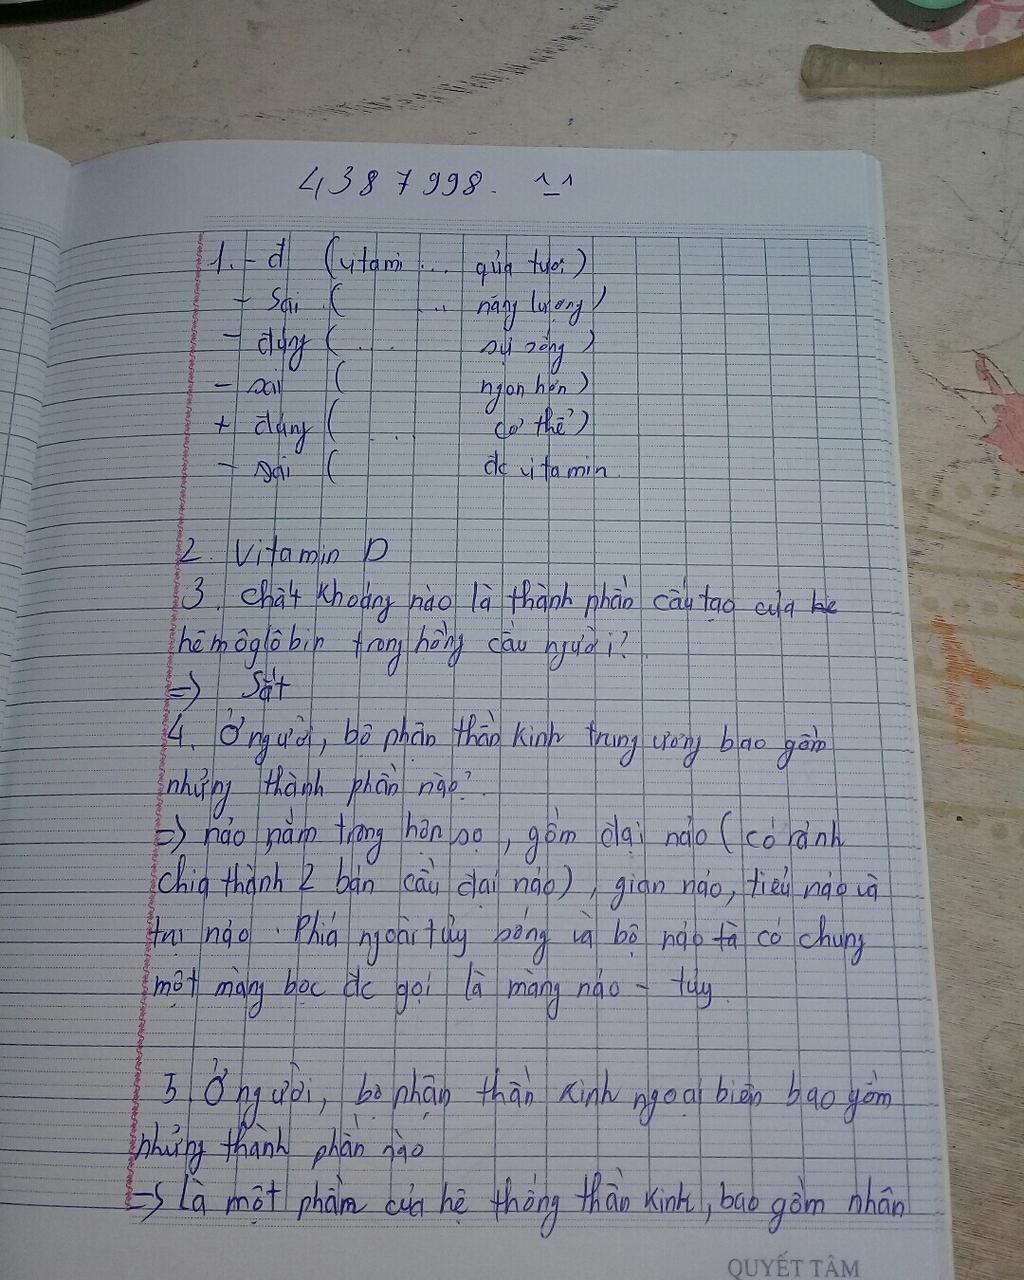 4387998. ^_^
1. - đ (vitami ... quả tươi)
- Sai ( ... năng lượng)
- đúng (... sự sống)
- sai ( ngon hơn)
+ đúng ( ... cơ thể)
- sai ( đc vitamin
2. Vitamin D
3. chất khoáng nào là thành phần cấu tạo của
hêmôglôbin trong hồng cầu người?
=> Sắt
4. Ở người, bộ phận thần kinh trung ương bao gồm
những thành phần nào?
=> não nằm trong hộp sọ, gồm đại não (có rảnh
chia thành 2 bán cầu đại não), gian não, tiểu não và
trụ não. Phía ngoài tủy sống và bộ não ta có chung
một màng bọc đc gọi là màng não - tủy
5 Ở người, bộ phận thần kinh ngoại biên bao gồm
những thành phần nào
=> Là một phần của hệ thống thần kinh, bao gồm nhân
QUYẾT TÂM